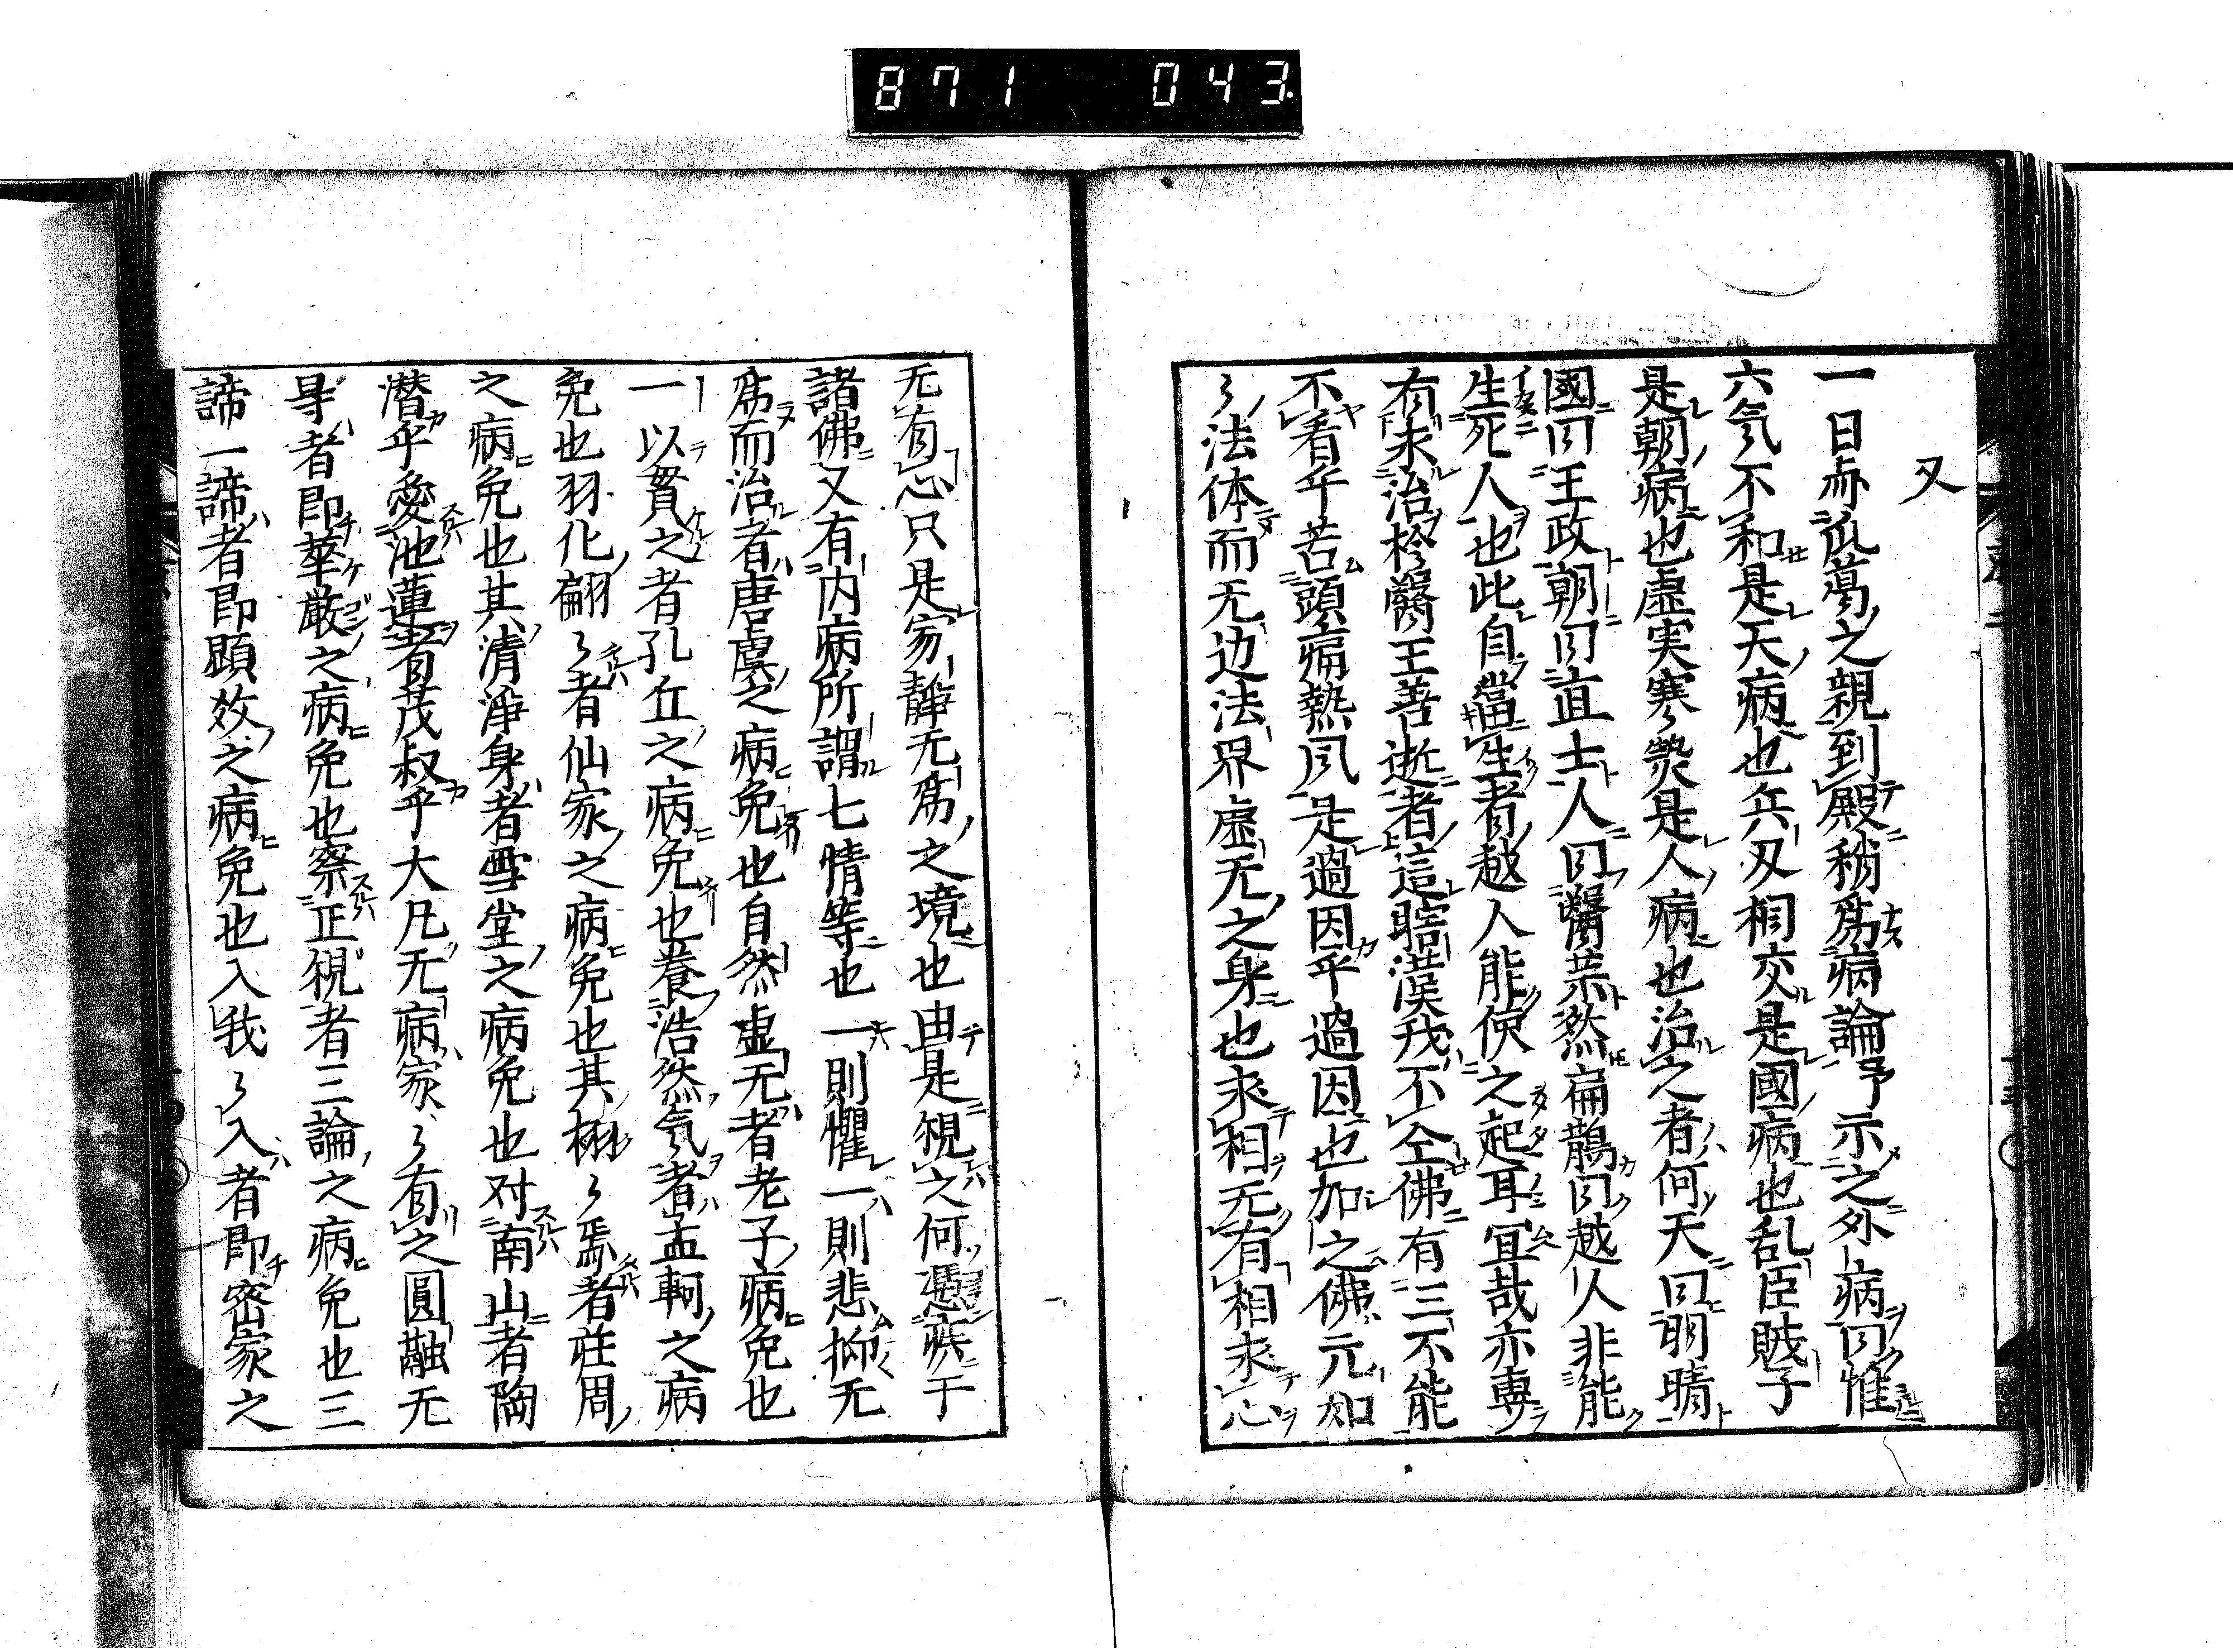 871 043
又
一日赤瓜葛之親到殿稍為病論予示之外病曰惟
六気不和是天病也兵刄相交是國病也乱臣賊子
是朝病也虚実寒熒是人病也治之者何天曰明晴
國曰王政朝曰直士人曰醫萠然扁鵲曰越人非能
生死人也此自當生者越人能使之起耳冝哉亦專
有求治柊醫王善逝者這瞎漢我不仝佛有三不能
不看乎苦頭痛熱風是過因乎過因也加之佛元知
〻法体而无边法界虚无之身也求相无有相求心
无有心只是家靜无為之境也由是視之何慿疾于
諸佛又有内病所謂七情等也一則懼一則悲抑无
為而治者唐虞之病免也自然虚无者老子病免也
一以貫之者孔丘之病免也養浩然気者孟軻之病
免也羽化翩〻者仙家之病免也其栩〻焉者荘周
之病免也其清淨身者雪堂之病免也対南山者陶
潜乎愛池蓮者茂叔乎大凡无病家〻有之圓融无
㝵者即華厳之病免也察正視者三論之病免也三
諦一諦者即顕教之病免也入我〻入者即密家之